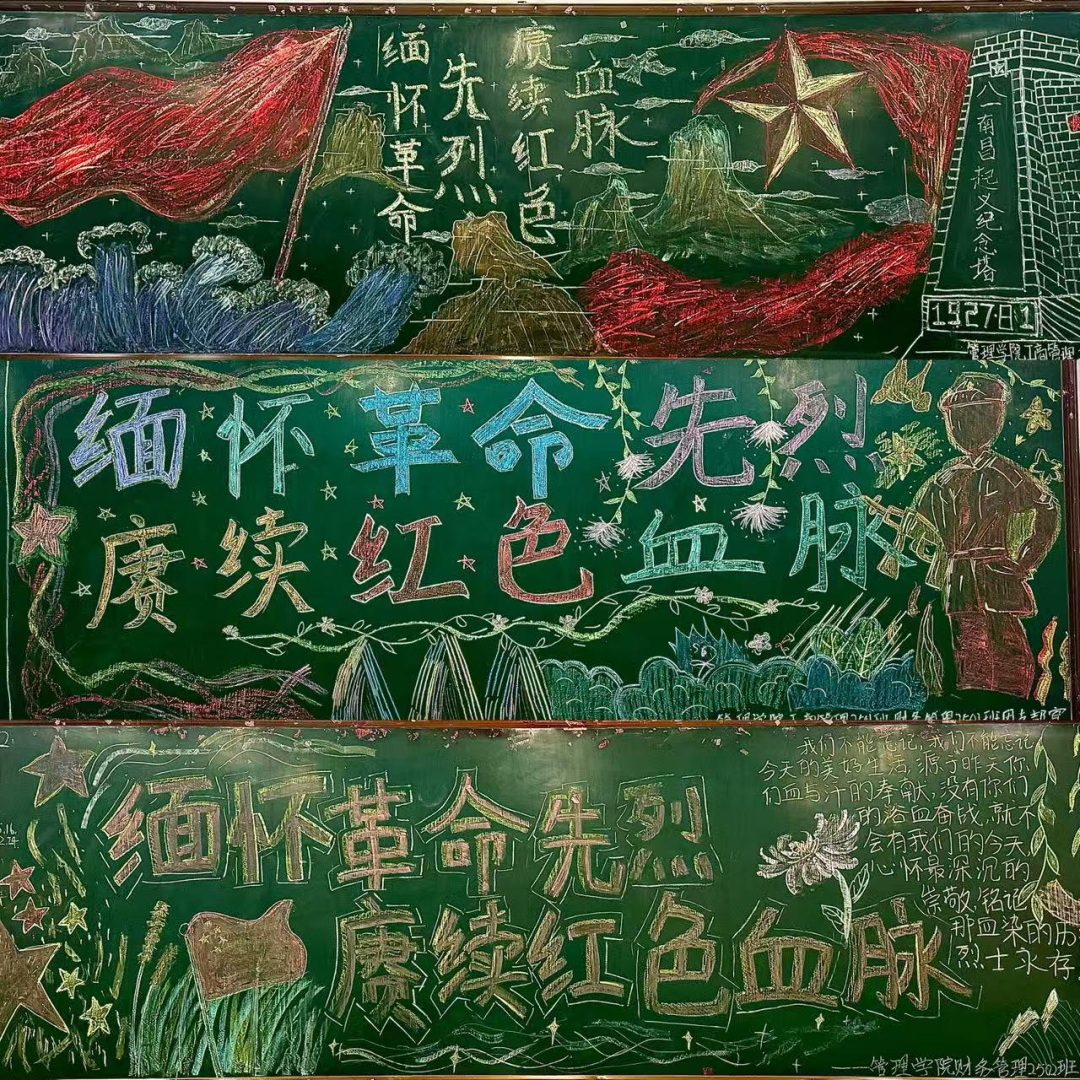 缅怀革命
先烈
赓续红色
血脉
八一南昌起义纪念塔
1927 8 1
管理学院工商管理
缅怀革命先烈
赓续红色血脉
缅怀革命先烈
赓续红色血脉
我们不能忘记,我们不能忘记
今天的美好生活,源于昨天你
们血与汗的奉献,没有你们
的浴血奋战,就不
会有我们的今天
心怀最深沉的
崇敬,铭记
那血染的历
烈士永存
管理学院财务管理2502班